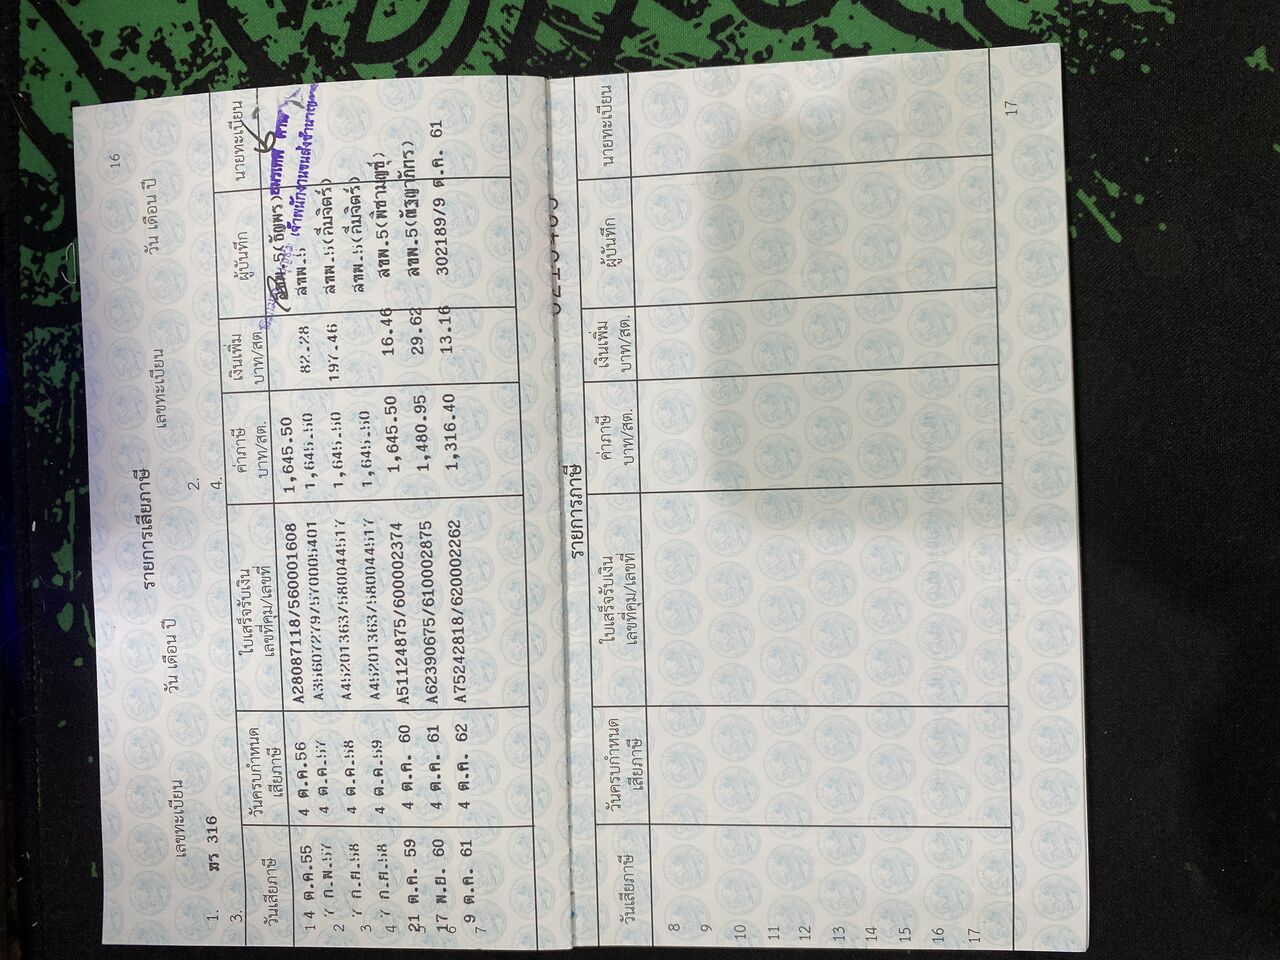 16
รายการเสียภาษี
เลขทะเบียน วัน เดือน ปี เลขทะเบียน วัน เดือน ปี
1. ฆร 316 2.
3. 4.
วันเสียภาษี วันครบกำหนด เสียภาษี ใบเสร็จรับเงิน เลขที่คุม/เลขที่ ค่าภาษี บาท/สต. เงินเพิ่ม บาท/สต. ผู้บันทึก นายทะเบียน
1 4 ต.ค.55 4 ต.ค.56 A28087118/560001608 1,645.50 สขพ.5(ธัญพร)
2 7 ก.พ.57 4 ต.ค.57 A35607279/570005401 1,645.50 82.28 สขพ.5 เจ้าพนักงานขนส่งชำนาญ
3 7 ก.ย.58 4 ต.ค.58 A45201363/580044517 1,645.50 197.46 สขพ.5(กีมจิตร์)
4 7 ก.ย.58 4 ต.ค.59 A45201363/580044517 1,645.50 สขพ.5(กีมจิตร์)
5 21 ต.ค. 59 4 ต.ค. 60 A51124875/600002374 1,645.50 16.46 สขพ.5(พิชามญชุ์)
6 17 พ.ย. 60 4 ต.ค. 61 A62390675/610002875 1,480.95 29.62 สขพ.5(ณัฐญาภัทร)
7 9 ต.ค. 61 4 ต.ค. 62 A75242818/620002262 1,316.40 13.16 302189/9 ต.ค. 61
รายการภาษี
วันเสียภาษี วันครบกำหนด เสียภาษี ใบเสร็จรับเงิน เลขที่คุม/เลขที่ ค่าภาษี บาท/สต. เงินเพิ่ม บาท/สต. ผู้บันทึก นายทะเบียน
8
9
10
11
12
13
14
15
16
17
17